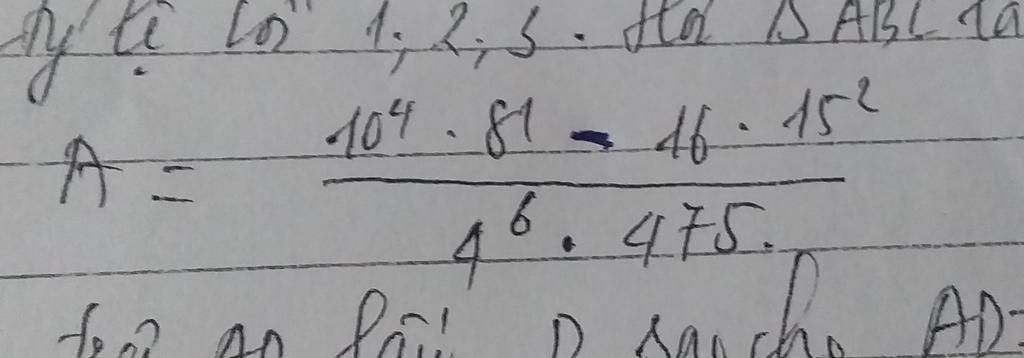 tỉ lệ 1; 2; 3. Hỏi Δ ABC là
A = \frac{10^4 . 81 - 16 . 15^2}{4^6 . 475.}
D sao cho AD =